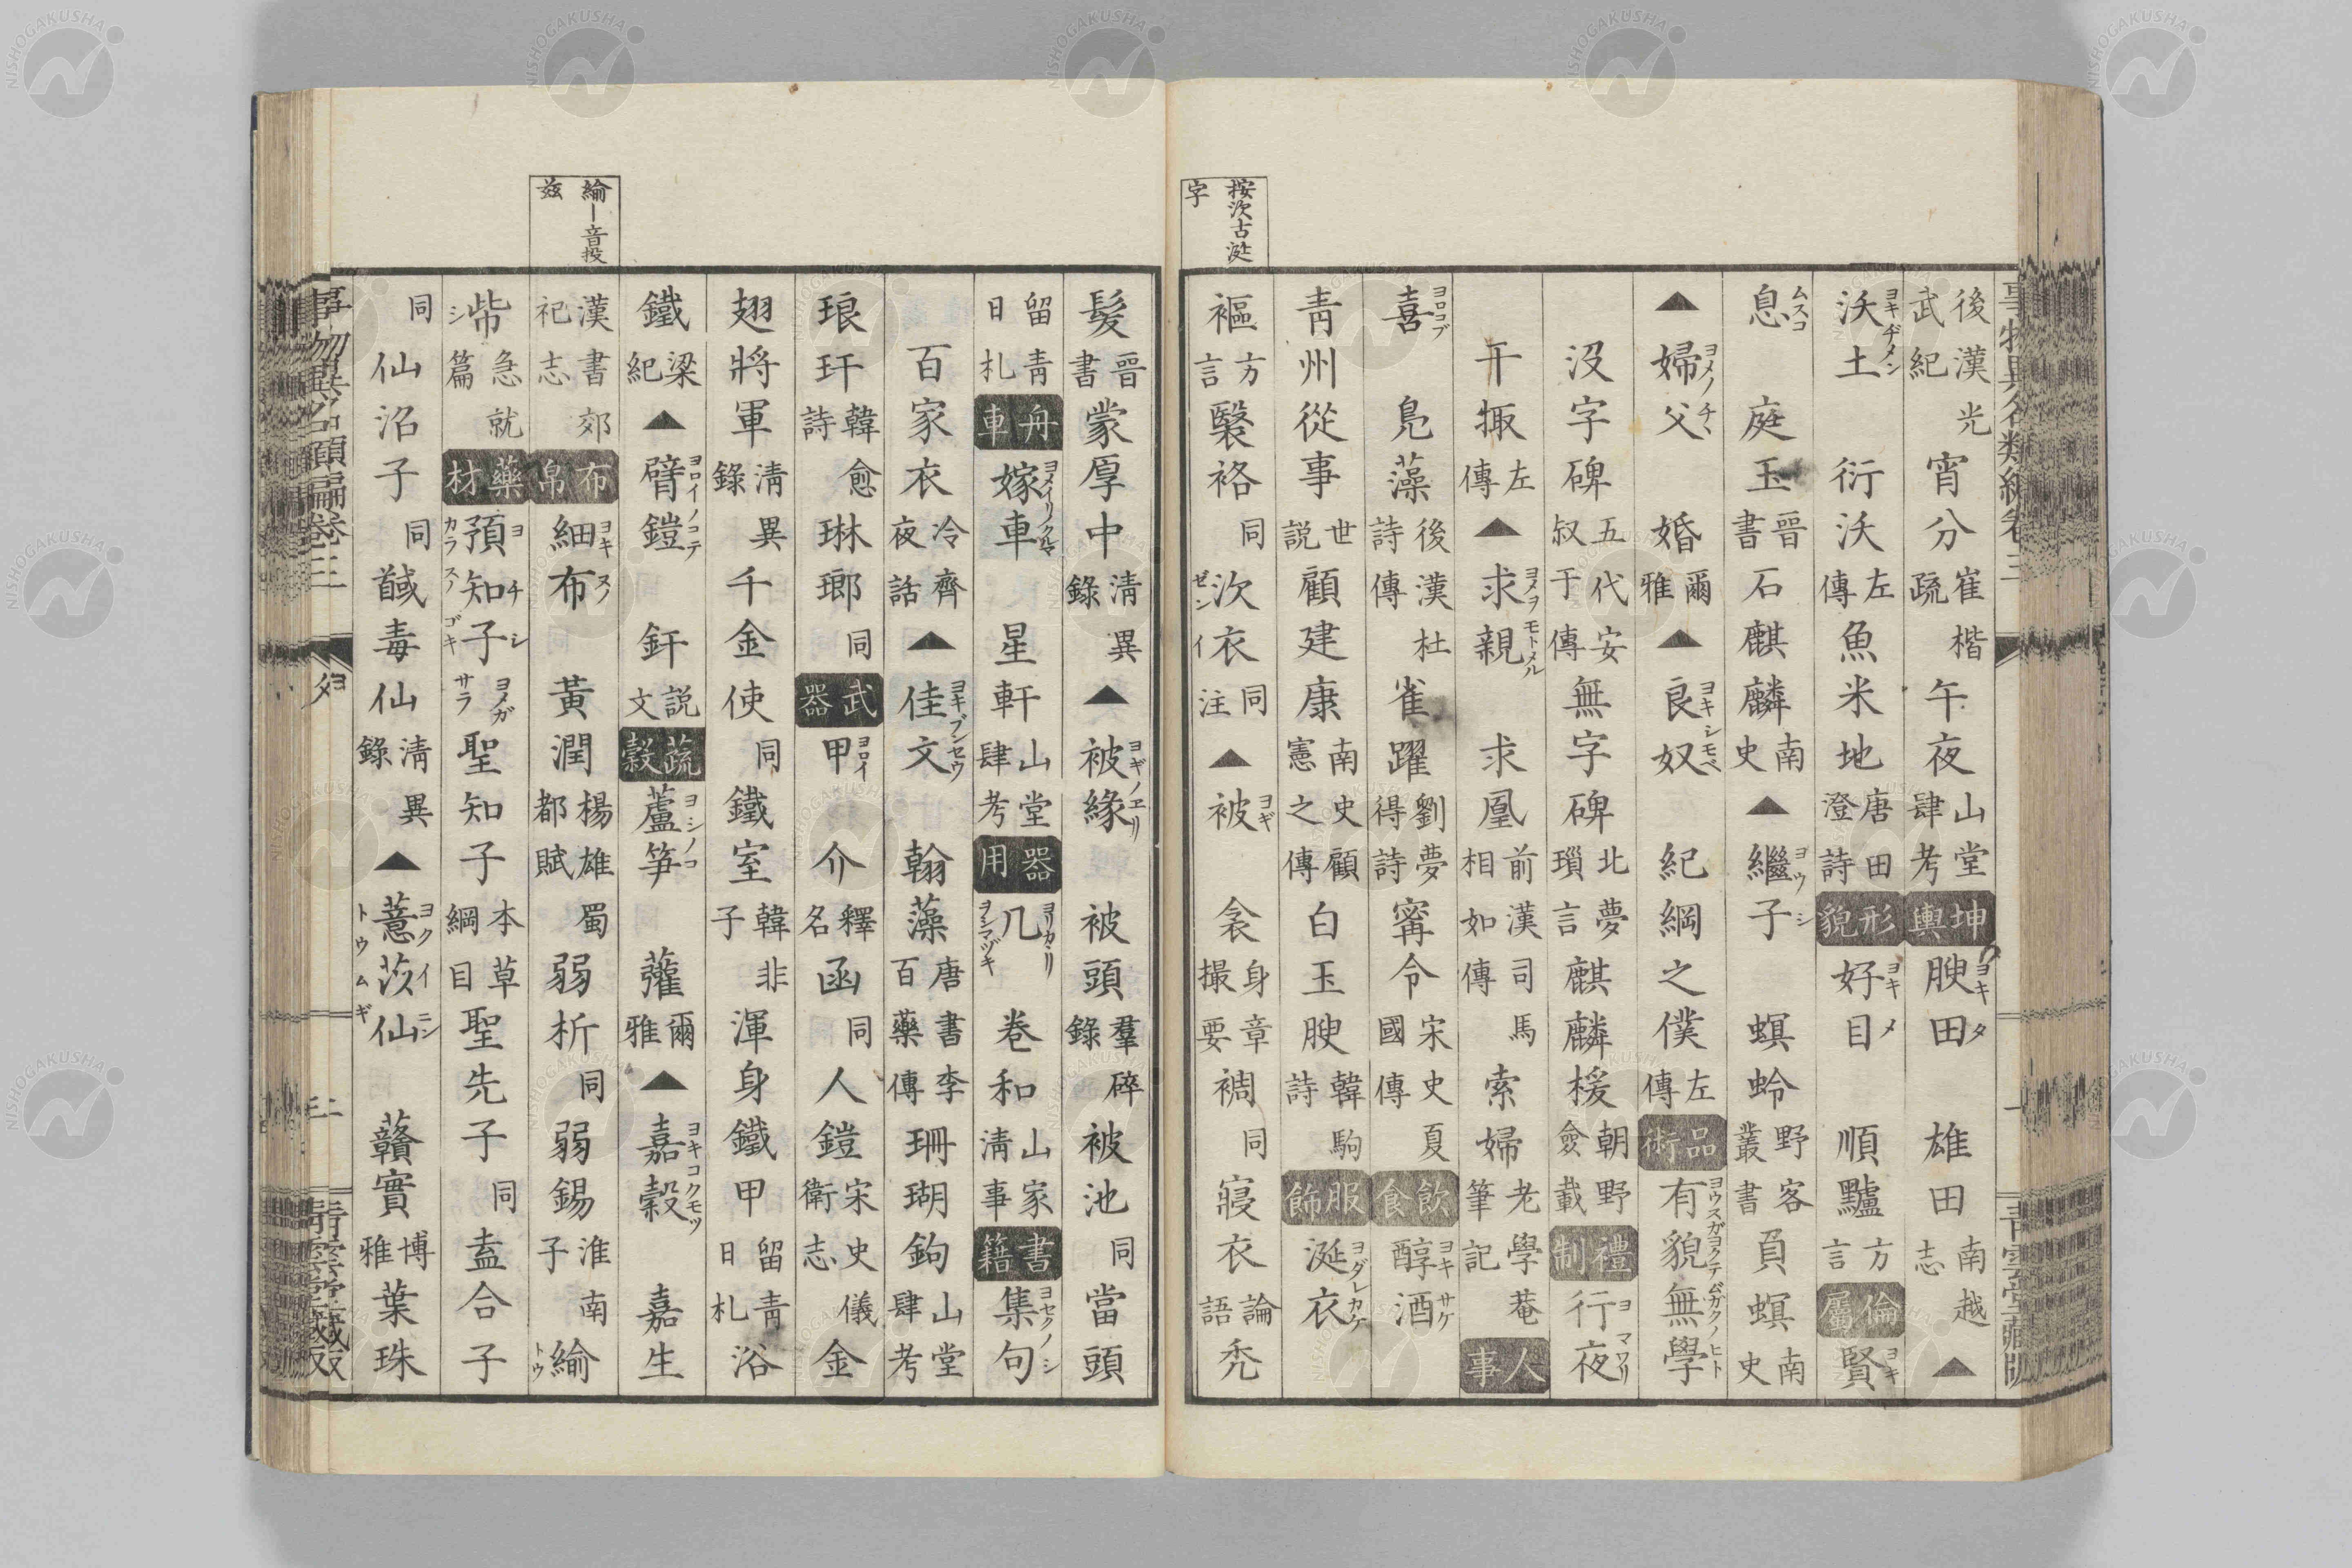 按次古涎
字
後漢光武紀 宵分 崔楷疏 午夜 山堂肆考 坤輿 腴田 ヨキタ 雄田 南越志 ▲
沃土 ヨキヂメン 衍沃 左傳 魚米地 唐田澄詩 形貌 好目 ヨキメ 順矑 方言 倫屬 賢 ヨキ
息 ムスコ 庭玉 晉書 石麒麟 南史 ▲ 繼子 ヨウシ 螟蛉 野客叢書 負螟 南史
▲ 婦父 ヨメノチヽ 婚 爾雅 ▲ 良奴 ヨキシモベ 紀綱之僕 左傳 品術 有貌無學 ヨウスガヨクテムガクノヒト
沒字碑 五代安叔千傳 無字碑 北夢瑣言 麒麟楥 朝野僉載 禮制 行夜 ヨマワリ
干掫 左傳 ▲ 求親 ヨメヲモトメル 求凰 前漢司馬相如傳 索婦 老學菴筆記 人事
喜 ヨロコブ 鳧藻 後漢杜詩傳 雀躍 劉夢得詩 甯令 宋史夏國傳 飲食 醇酒 ヨキサケ
青州從事 世說 顧建康 南史顧憲之傳 白玉腴 韓駒詩 服飾 涎衣 ヨダレカケ
褔 方言 繄袼 同 次衣 ゼンイ 同注 ▲ 被 ヨギ 衾 身章撮要 裯 同 寢衣 論語 禿
綸ー音投
茲
髮 晉書 蒙厚中 淸異錄 ▲ 被緣 ヨギノエリ 被頭 羣碎錄 被池 同 當頭
留青日札 舟車 嫁車 ヨメイリクルマ 星軒 山堂肆考 器用 几 ヨリカヽリ ヲシマヅキ 卷和 山家淸事 書籍 集句 ヨセクノシ
百家衣 冷齊夜話 ▲ 佳文 ヨキブンセウ 翰藻 唐書李百藥傳 珊瑚鉤 山堂肆考
琅玕 韓愈詩 琳瑯 同 武器 甲 ヨロイ 介 釋名 函 同 人鎧 宋史儀衛志 金
翅將軍 淸異錄 千金使 同 鐵室 韓非子 渾身鐵甲 留青日札 浴
鐵 梁紀 ▲ 臂鎧 ヨロイノコテ 釬 說文 蔬穀 蘆笋 ヨシノコ 虇 爾雅 ▲ 嘉穀 ヨキコクモツ 嘉生
漢書郊祀志 布帛 細布 ヨキヌノ 黃潤 楊雄蜀都賦 弱析 同 弱錫 淮南子 緰 トウ
幋 シ 急就篇 藥材 預知子 ヨチシ カラスノゴキ ヨメガサラ 聖知子 本草綱目 聖先子 同 盍合子
同 仙沼子 同 䤋毒仙 淸異錄 ▲ 薏苡仁 ヨクイニン トウムギ 贛實 博雅 葉珠
事物異名類編卷三 ヨタ 二 青雲堂藏版